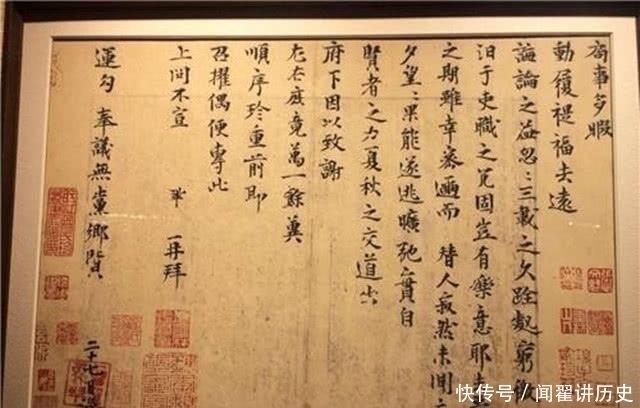 局事多暇
動履禔福去遠
誨論之益忽忽三載之久跧處窮徼
汩于吏職之冗固豈有樂意耶去
之期雖幸密邇而替人寂然未聞亦
夕望望果能遂逃曠弛實自
賢者之力夏秋之交道出
府下因以致謝
左右庶竟萬一餘冀
順序珍重前即
召擢偶便專此
上問不宣 鞏再拜
運勾奉議無黨鄉賢
二十七日謹
快传号／闻翟讲历史